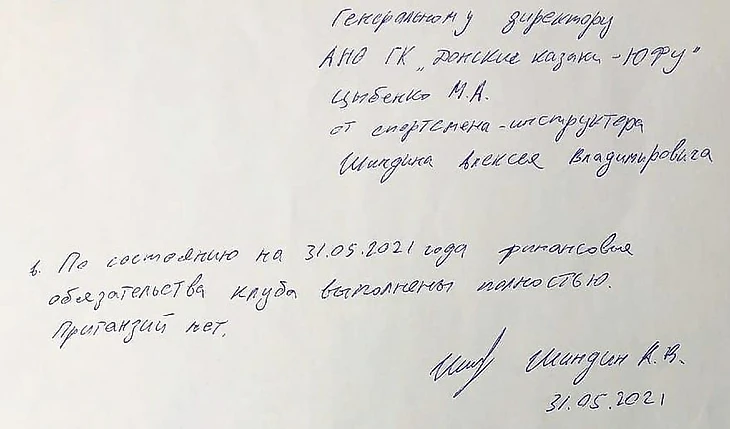 Генеральному директору
АНО ГК "Донские казаки-ЮФУ"
Цыбенко М.А.
от спортсмена-инструктера
Шиндина Алексея Владимировича
в. По состоянию на 31.05.2021 года финансовые
обязательства клуба выполнены полностью.
Пританзий нет.
Шиндин А.В.
31.05.2021